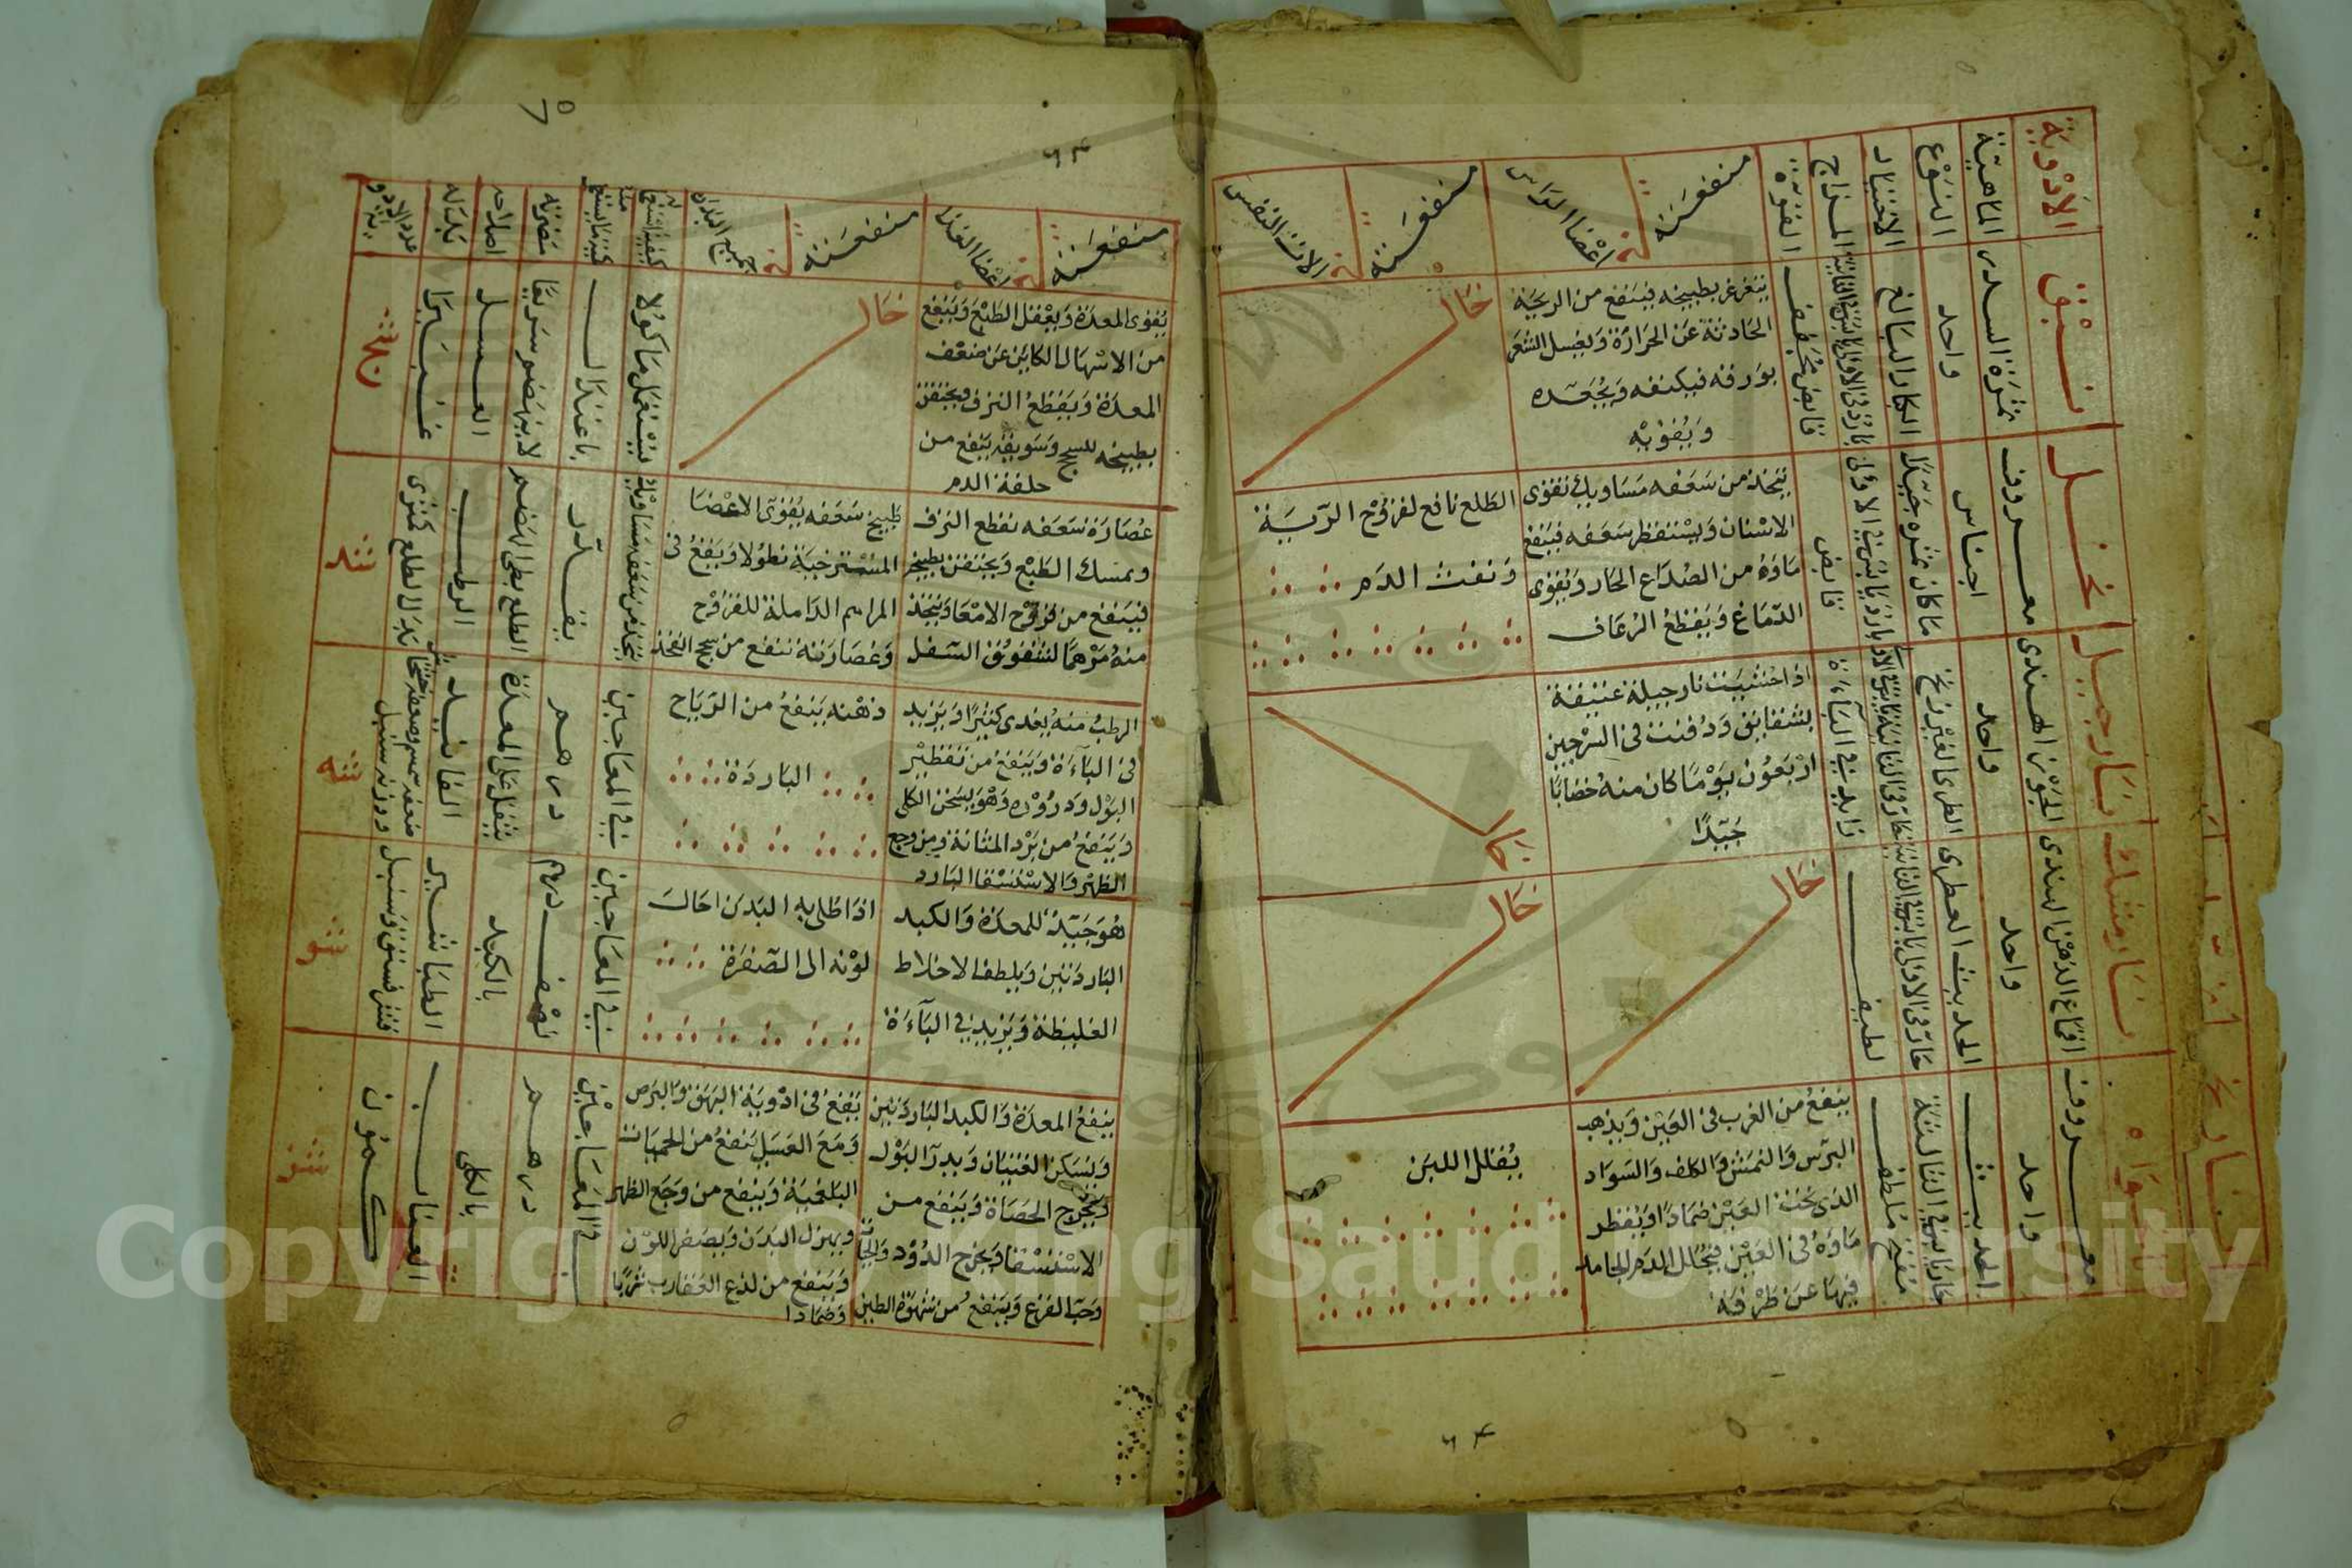 الأدوية
الماهية
النوع
الاختيار
المزاج
القوة
منفعته
في أعضا الراس
منفعته
في الات النفس
نبق
ثمرة السدر
واحد
الكبار البالغ
قابض مجفف
يتغرغر بطبيخه فينفع من الريحية
الحادثة عن الحرارة ولغسل الشعر
بورقه فيكثفه ويجعده
ويقويه
خال
نخل
معروف
اجناس
ما كان ثمره جيدا
بارد يابس في الاولى
قابض
يتخذ من سعفه مساويك تقوى
الاسنان ويستقطر سعفه فينفع
ماؤه من الصداع الحار ويقوى
الدماغ ويقطع الرعاف
الطلع نافع لقروح الرية
ونفث الدم
نارجيل
الجوز الهندى
واحد
الطرى الغير زنخ
زايد في الباءة
اذا حشيت نارجيلة عتيقة
بشقايق ودفنت في السرجين
اربعون يوما كان منه خضابا
جيدا
خال
نارمشك
اقماع الدهن الهندى
واحد
الحديث العطرى
لطيف
خال
خال
نانخواه
معروف
واحد
الحديث
حار يابس في الثالثة
مفتح ملطف
ينفع من الغرب في العين ويذهب
البرش والنمش والكلف والسواد
الذى تحت العين ضمادا ويقطر
ماؤه في العين فيحلل الدم الجامد
فيها عن طرفة
يقلل اللبن
٦٤
٦٥
٦٤
منفعته
في اعضا الغذا
منفعته
في جميع البدن
كيفية استعماله
كمية ما يستعمل منه
مضرته
اصلاحه
بدله
عدد الادوية
يقوى المعدة ويعقل الطبع وينفع
من الاسهال الكاين عن ضعف
المعدة ويقطع النزف ويحتقن
بطبيخه للسحج وسويقه ينفع من
خلفة الدم
خال
يستعمل ماكولا
باعتدال
لا ينهضم سريعا
العسل
غبيرا
عصارة سعفه تقطع النزف
ويمسك الطبع ويحتقن بطبيخه
فينفع من قروح الامعا ويتخذ
منه مرهما لشقوق السفل
طبيخ سعفه يقوى الاعضا
المسترخية نطولا ويقع في
المراهم الداملة للقروح
وعصارته تنفع من سحج الفخذ
يتخذ من سعفه مساويك
بقدر
الطلع بطى الهضم
الرطب
بدل الطلع كثرى
شند
الرطب منه يغذى كثيرا ويزيد
في الباءة وينفع من تقطير
البول ودروره وهو يسخن الكلى
وينفع من برد المثانة ومن وجع
الظهر والاستسقا البارد
دهنه ينفع من الرياح
الباردة
في المعاجين
درهم
يثقل على المعدة
الفانيد
شنه
هو جيد للمعدة والكبد
الباردتين ويلطف الاخلاط
الغليظة ويزيد في الباءة
اذا طلى به البدن احال
لونه الى الصفرة
في المعاجين
نصف درهم
بالكبد
الطباشير
قشر فستق وسنبل
شنو
ينفع المعدة والكبد الباردتين
ويسكن الغثيان ويدر البول
ويخرج الحصاة وينفع من
الاستسقا ويخرج الدود والحيات
وحب القرع وينفع من شهوة الطين
يقع في ادوية البهق والبرص
ومع العسل ينفع من الحميات
البلغمية وينفع من وجع الظهر
ويهزل البدن ويصفر اللون
وينفع من لدغ العقارب شربا
وضمادا
في المعاجين
درهم
بالكلى
العناب
كمون
شنز
Copyright © King Saud University